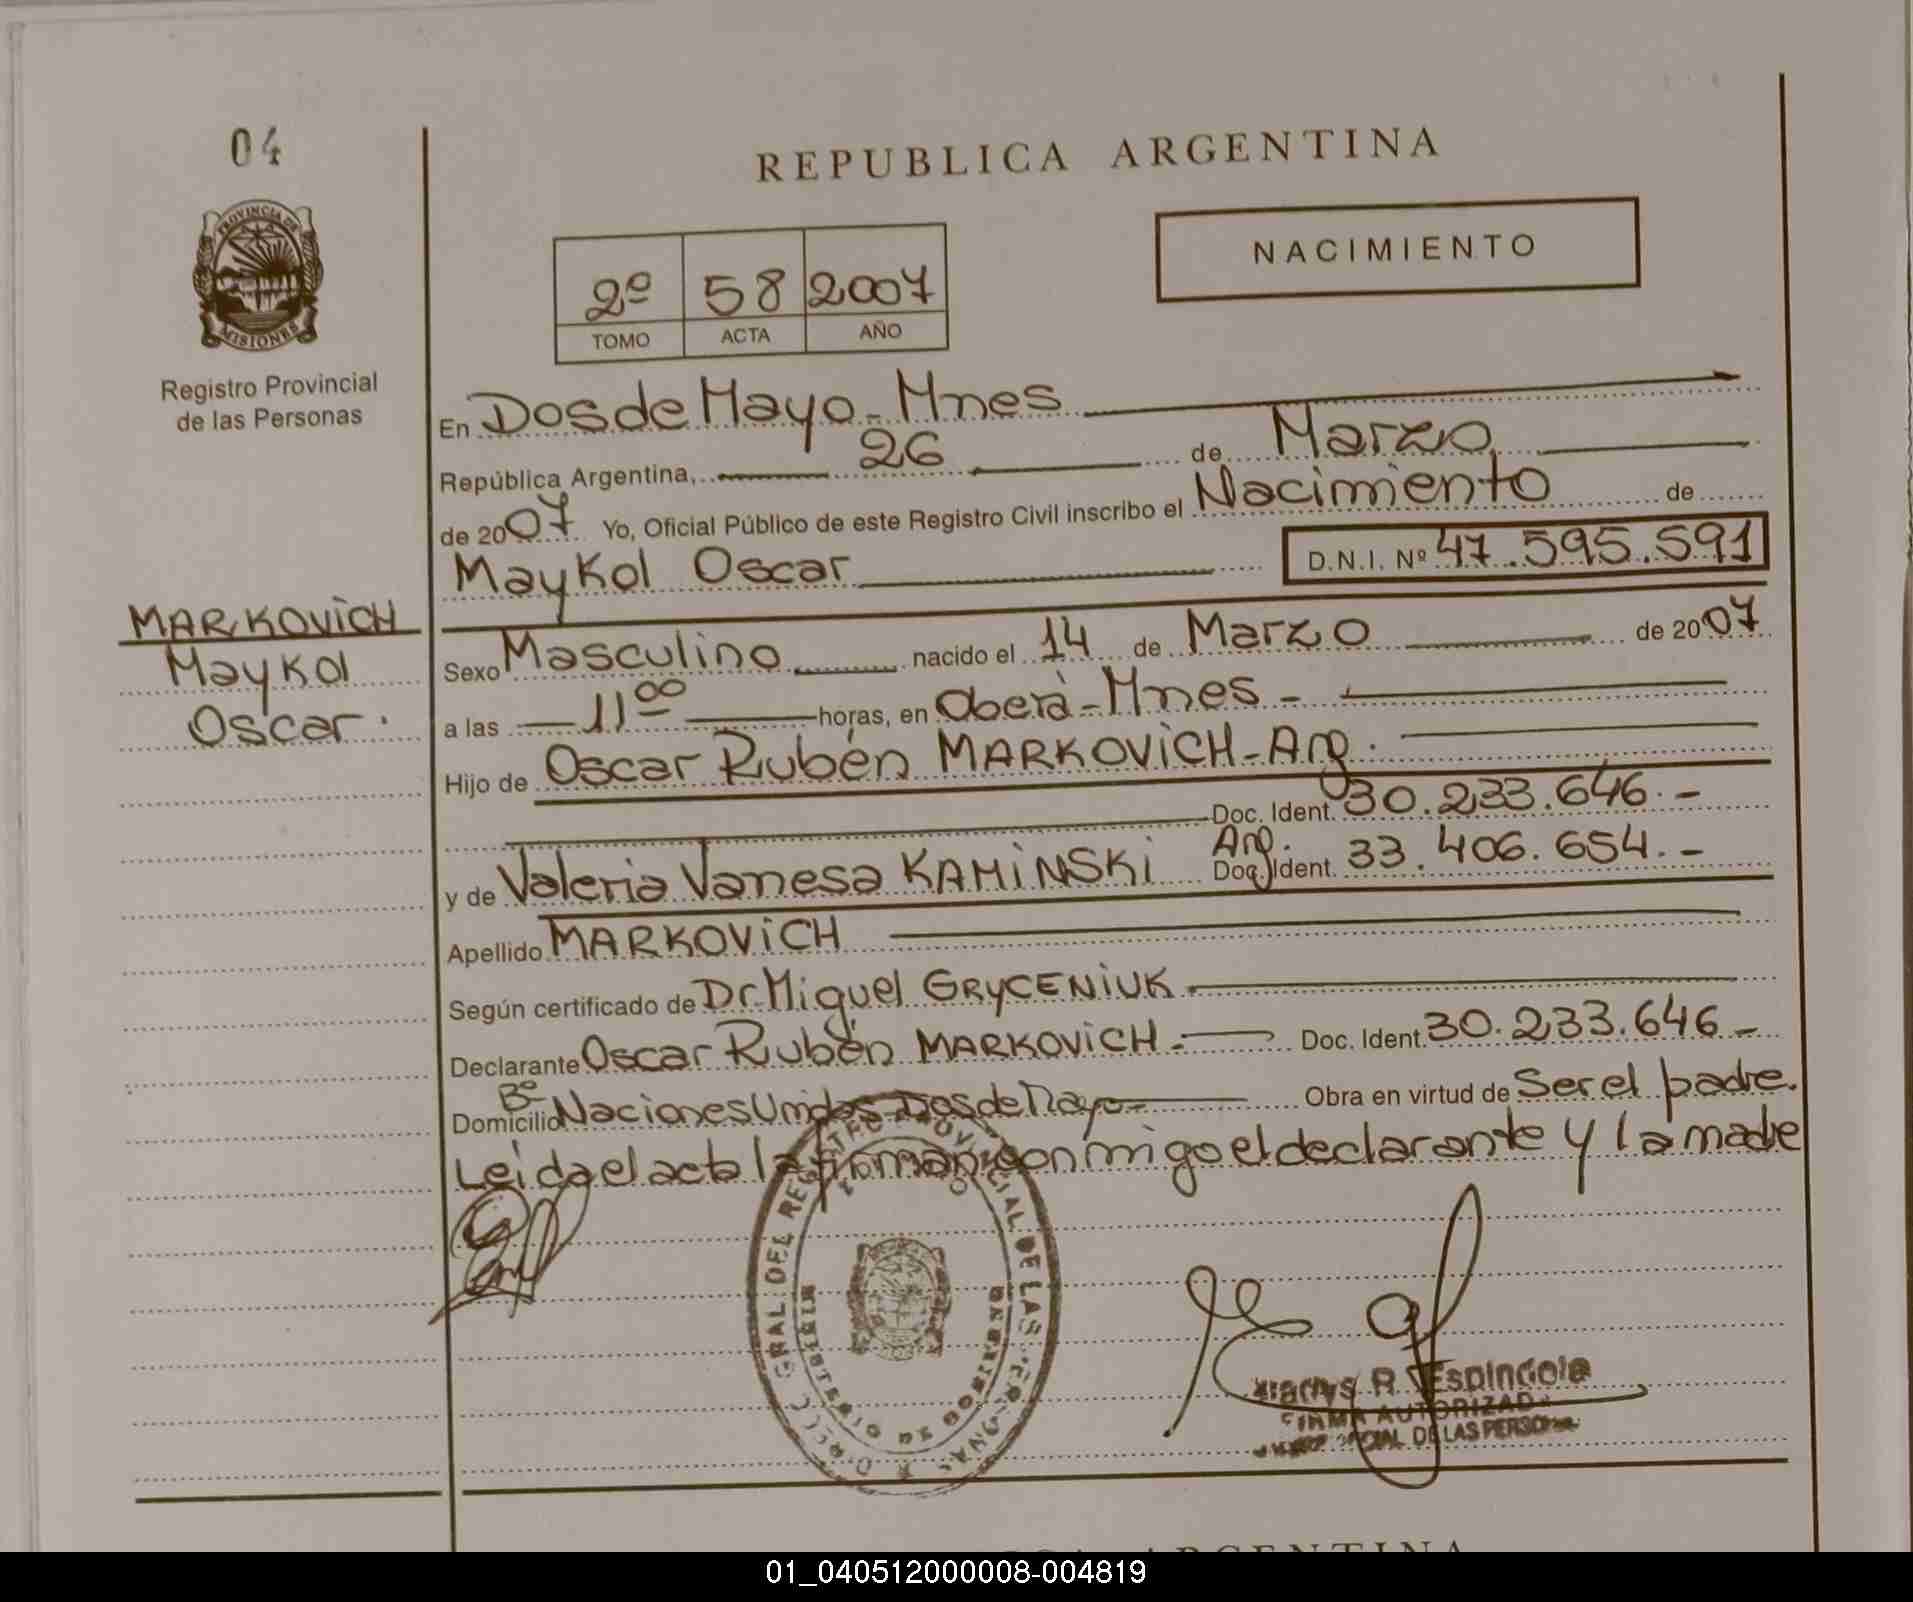 04
REPUBLICA ARGENTINA
PROVINCIA DE
MISIONES
Registro Provincial
de las Personas
NACIMIENTO
2º 58 2007
TOMO ACTA AÑO
En Dos de Mayo - Mnes
República Argentina, 26 de Marzo
de 2007 Yo, Oficial Público de este Registro Civil inscribo el Nacimiento de
Maykol Oscar D.N.I. Nº 47.595.591
MARKOVICH
Maykol
Oscar.
Sexo Masculino nacido el 14 de Marzo de 2007
a las 11 00 horas, en Oberá - Mnes -
Hijo de Oscar Rubén MARKOVICH - Arg.
Doc. Ident. 30.233.646.-
y de Valeria Vanesa KAMINSKI Arg. Doc. Ident. 33.406.654.-
Apellido MARKOVICH
Según certificado de Dr. Miguel GRYCENIUK
Declarante Oscar Rubén MARKOVICH.- Doc. Ident. 30.233.646.-
Domicilio Bº Naciones Unidas - Dos de Mayo - Obra en virtud de Ser el padre.
Leida el acta la firman conmigo el declarante y la madre
GRAL. DEL REGISTRO PROVINCIAL DE LAS PERSONAS
MINISTERIO DE GOBIERNO
Gladys R. Espindola
FIRMA AUTORIZADA
DE LAS PERSONAS
REPUBLICA ARGENTINA
01_040512000008-004819